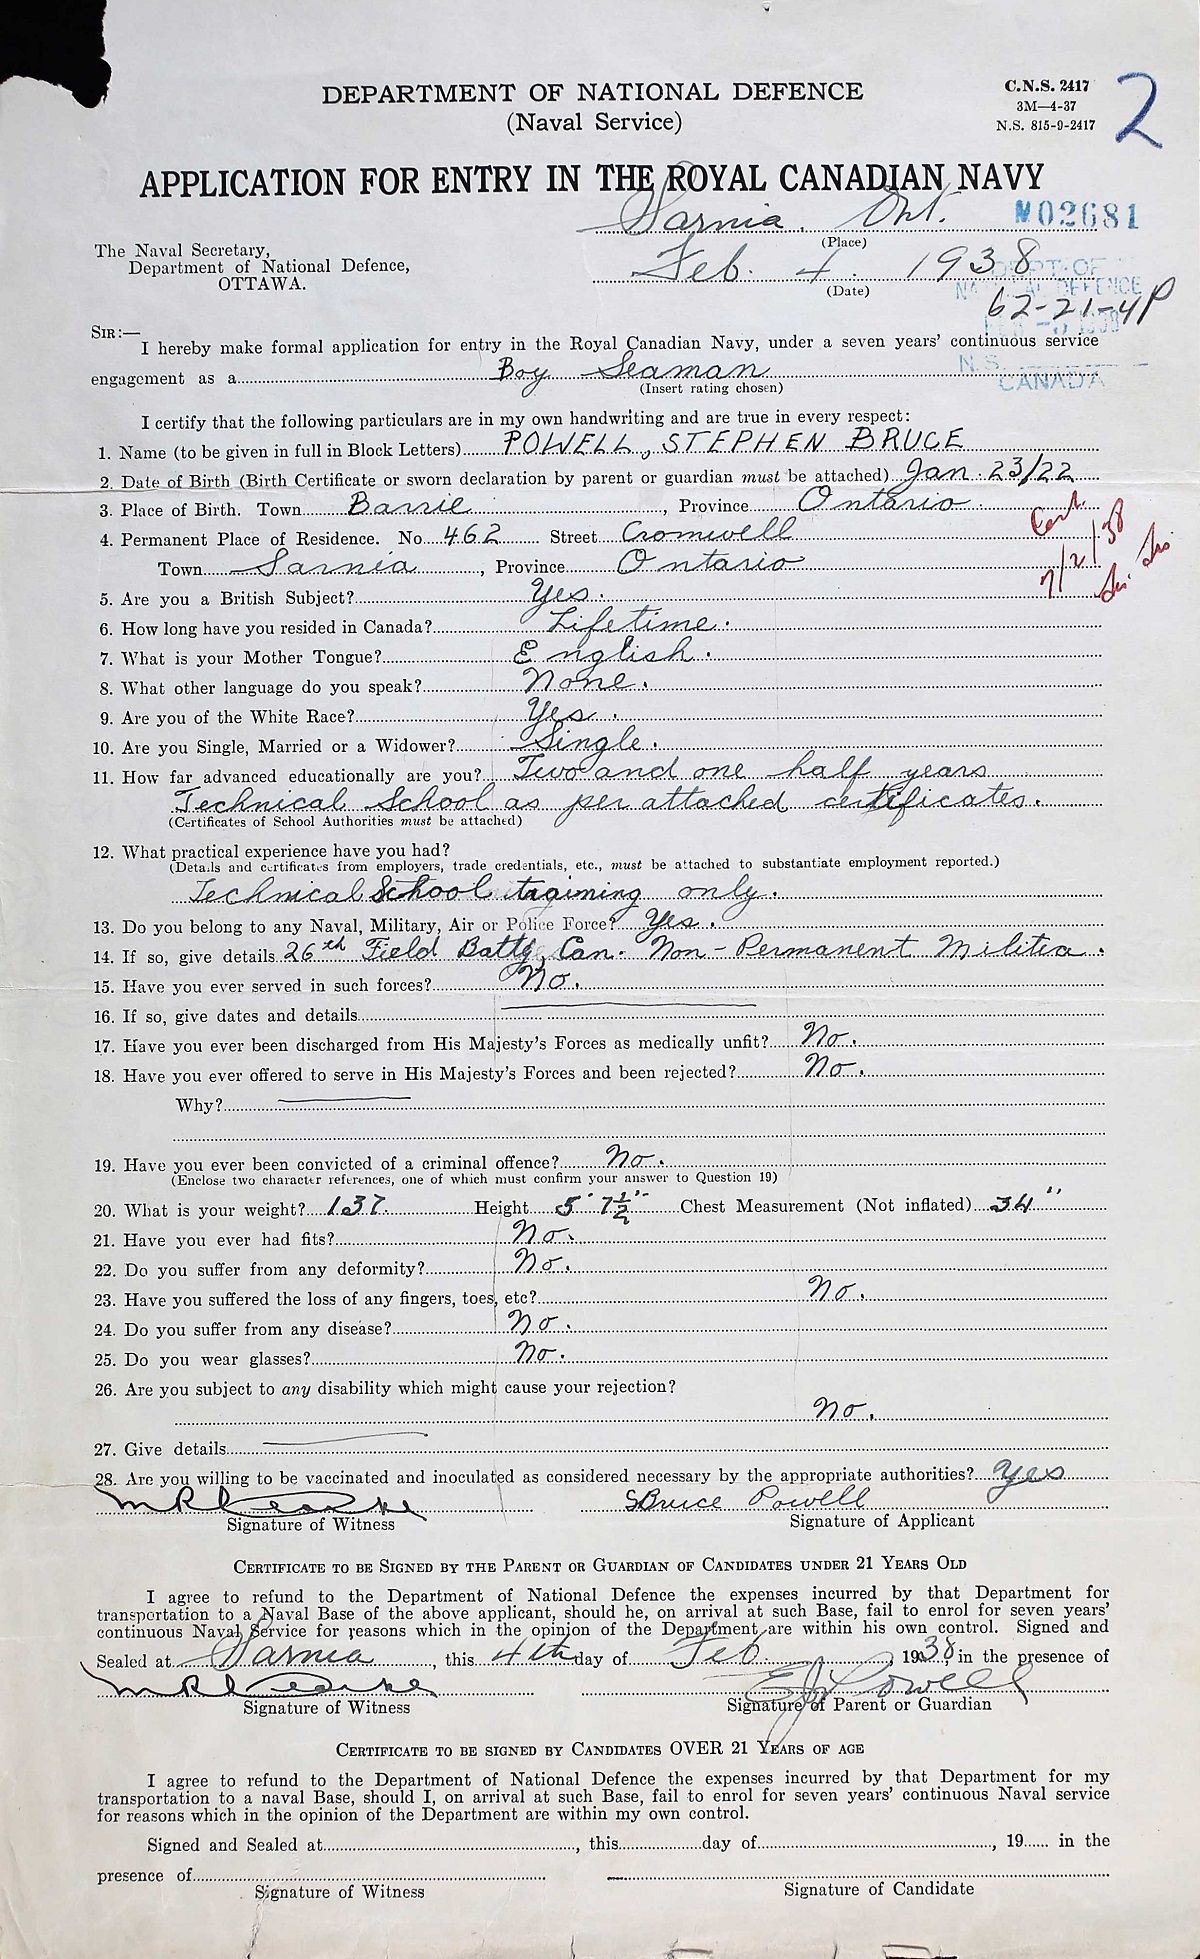 DEPARTMENT OF NATIONAL DEFENCE
(Naval Service)
C.N.S. 2417
3M—4-37
N.S. 815-9-2417
2
APPLICATION FOR ENTRY IN THE ROYAL CANADIAN NAVY
Sarnia, Ont.
(Place)
N02681
The Naval Secretary,
Department of National Defence,
OTTAWA.
Feb. 4. 1938
(Date)
DEPT. OF
NATIONAL DEFENCE
62-21-4P
N.S.
CANADA
SIR:—
I hereby make formal application for entry in the Royal Canadian Navy, under a seven years' continuous service
engagement as a Boy Seaman
(Insert rating chosen)
I certify that the following particulars are in my own handwriting and are true in every respect:
1. Name (to be given in full in Block Letters) POWELL, STEPHEN BRUCE
2. Date of Birth (Birth Certificate or sworn declaration by parent or guardian must be attached) Jan. 23/22
3. Place of Birth. Town Barrie, Province Ontario.
4. Permanent Place of Residence. No 462 Street Cromwell
Town Sarnia, Province Ontario
7/2/38
5. Are you a British Subject? Yes.
6. How long have you resided in Canada? Lifetime.
7. What is your Mother Tongue? English.
8. What other language do you speak? None.
9. Are you of the White Race? Yes.
10. Are you Single, Married or a Widower? Single.
11. How far advanced educationally are you? Two and one half years
Technical School as per attached certificates.
(Certificates of School Authorities must be attached)
12. What practical experience have you had?
(Details and certificates from employers, trade credentials, etc., must be attached to substantiate employment reported.)
Technical School training only.
13. Do you belong to any Naval, Military, Air or Police Force? Yes.
14. If so, give details 26th Field Batty. Can. Non-Permanent Militia.
15. Have you ever served in such forces? No.
16. If so, give dates and details
17. Have you ever been discharged from His Majesty's Forces as medically unfit? No.
18. Have you ever offered to serve in His Majesty's Forces and been rejected? No.
Why?
19. Have you ever been convicted of a criminal offence? No.
(Enclose two character references, one of which must confirm your answer to Question 19)
20. What is your weight? 137. Height 5' 7½" Chest Measurement (Not inflated) 34"
21. Have you ever had fits? No.
22. Do you suffer from any deformity? No.
23. Have you suffered the loss of any fingers, toes, etc? No.
24. Do you suffer from any disease? No.
25. Do you wear glasses? No.
26. Are you subject to any disability which might cause your rejection?
No.
27. Give details
28. Are you willing to be vaccinated and inoculated as considered necessary by the appropriate authorities? Yes
SBruce Powell
Signature of Witness Signature of Applicant
CERTIFICATE TO BE SIGNED BY THE PARENT OR GUARDIAN OF CANDIDATES UNDER 21 YEARS OLD
I agree to refund to the Department of National Defence the expenses incurred by that Department for
transportation to a Naval Base of the above applicant, should he, on arrival at such Base, fail to enrol for seven years'
continuous Naval Service for reasons which in the opinion of the Department are within his own control. Signed and
Sealed at Sarnia, this 4th day of Feb., 1938, in the presence of
E J Powell
Signature of Witness Signature of Parent or Guardian
CERTIFICATE TO BE SIGNED BY CANDIDATES OVER 21 YEARS OF AGE
I agree to refund to the Department of National Defence the expenses incurred by that Department for my
transportation to a naval Base, should I, on arrival at such Base, fail to enrol for seven years' continuous Naval service
for reasons which in the opinion of the Department are within my own control.
Signed and Sealed at, this day of, 19 in the
presence of
Signature of Witness Signature of Candidate